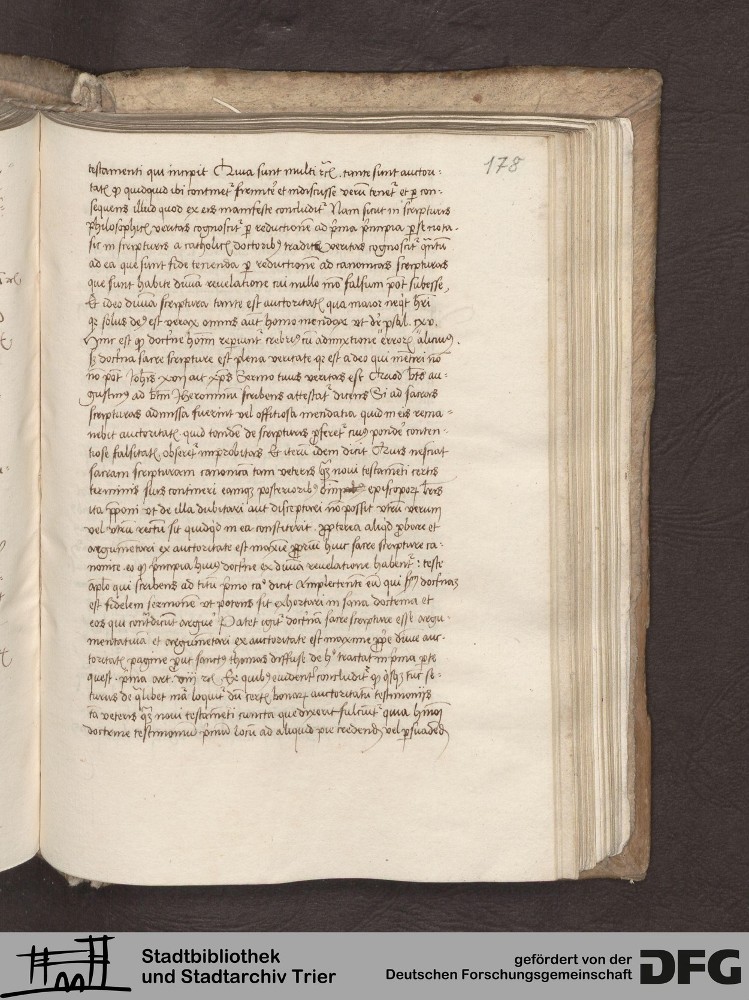 178
testamenti qui incipit Quia sunt multi tante sunt auctori-
tatis quidquid ibi continet firmiter et indiscusse verum tenet et per con-
sequens illud quod ex eis manifeste concludit Nam sicut in scripturis
philosophicis veritas cognoscit per reductionem ad prima principia per se nota
sic in scripturis a catholicis doctoribus tradite veritas cognoscit
ad ea que sunt fide tenenda per reductionem ad canonicas scripturas
que sunt habite divina revelatione cui nullo modo falsum potest subesse
Et ideo divina scriptura tante est auctoritatis qua maior nequit haberi
quia solus deus est verax omnis autem homo mendax ut dicitur psal. cxv.
Hinc est quod doctrine hominum cum admixtione errorum
sed doctrina sacre scripture est plena veritate quia est a deo qui mentiri non
non potest Johannis xvij ait xps Sermo tuus veritas est Quod beatus au-
gustinus ad beatum Jheronimum scribens attestat dicens Si ad sacras
scripturas admissa fuerint vel offitiosa mendatia quid in eis rema-
nebit auctoritatis quid tandem de scripturis proferet cuius pondere conten-
tiose falsitatis obseret improbitas Et iterum idem dicit Quis nesciat
sacram scripturam canonicam tam veteris quam noui testamenti certis
terminis suis contineri eamque posterioribus episcoporum litteris
ita preponi ut de illa dubitari aut disceptari non possit utrum verum
vel utrum rectum sit quidquid in ea constiterit propterea aliquid probare et
argumentari ex auctoritate est maxime proprium huic sacre scripture ca-
nonice eo quod principia huius doctrine ex divina revelatione habent teste
apostolo qui scribens ad titum primo ca° dicit Amplectentem eum qui secundum doctrinam
est fidelem sermonem ut potens sit exhortari in sana doctrina et
eos qui contradicunt arguere Patet igitur doctrinam sacre scripture esse argu-
mentativam et argumentari ex auctoritate est maxime proprie divine auc-
toritatis pagine prout sanctus thomas diffuse de hoc tractat in prima parte
quest. prima art. viij Ex quibus evidenter concludit quod
de qualibet materia loquit dum certis bonarum auctoritatum testimonijs
tam veteris quam noui testamenti cuncta que dixerit fulciunt quia huiusmodi
doctrine testimonium primum locum ad aliquid pie credendum vel persuadendum
Stadtbibliothek
und Stadtarchiv Trier
gefördert von der
Deutschen Forschungsgemeinschaft
DFG